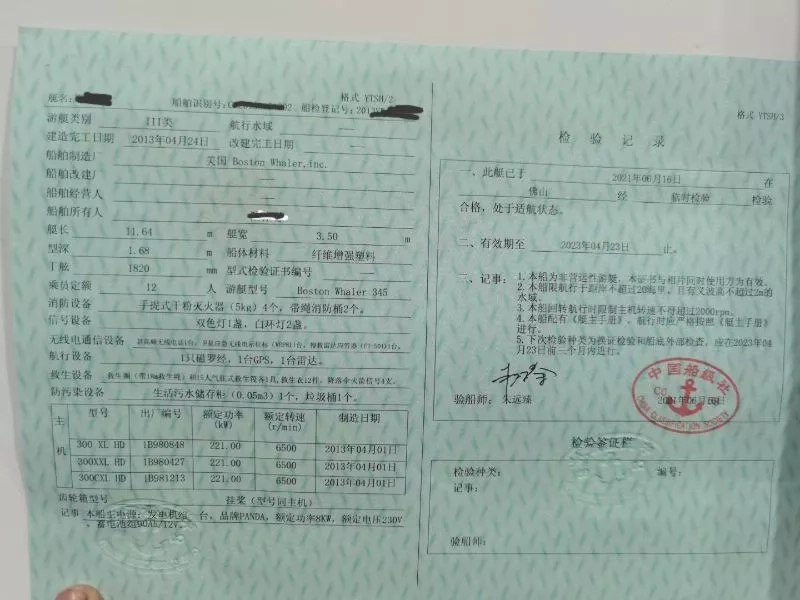 艇名:
船舶识别号:
格式 YTSH/2
船检登记号: 2013
游艇类别 III类 航行水域 —
建造完工日期 2013年04月24日 改建完工日期 —
船舶制造厂 美国 Boston Whaler,inc.
船舶改建厂 —
船舶经营人 —
船舶所有人
艇长 11.64 m 艇宽 3.50 m
型深 1.68 m 船体材料 纤维增强塑料
干舷 1820 mm 型式检验证书编号 —
乘员定额 12 人 游艇型号 Boston Whaler 345
消防设备 手提式干粉灭火器（5kg）4个，带绳消防桶2个。
信号设备 双色灯1盏，白环灯2盏。
无线电通信设备
航行设备 1只磁罗经，1台GPS，1台雷达。
救生设备
防污染设备 生活污水储存柜（0.05m3）1个，垃圾桶1个。
主机
型号 出厂编号 额定功率(kW) 额定转速(r/min) 制造日期
300 XL HD 1B980848 221.00 6500 2013年04月01日
300XXL HD 1B980427 221.00 6500 2013年04月01日
300CXL HD 1B981213 221.00 6500 2013年04月01日
齿轮箱型号 挂桨（型号同主机）
记事 本船主电源：发电机组一台，品牌PANDA，额定功率8KW，额定电压230V
、蓄电池组90Ah/12V。
格式 YTSH/3
检验记录
一、此艇已于 2021年06月16日 在
佛山 经 临时检验 检验
合格，处于适航状态。
二、有效期至 2023年04月23日 止。
三、记事：
1.本船为非营运性游艇，本证书与相片同时使用方为有效。
2.本船限航行于距岸不超过20海里，且有义波高不超过2m的
水域。
3.本船回转航行时限制主机转速不得超过2000rpm。
4.本船配有《艇主手册》，航行时应严格按照《艇主手册》
进行。
5.下次检验种类为换证检验和船底外部检查，应在2023年04
月23日前三个月内进行。
验船师： 朱远臻
中国船级社
CHINA CLASSIFICATION SOCIETY
检验签证栏
检验种类： 编号：
记事：
验船师：